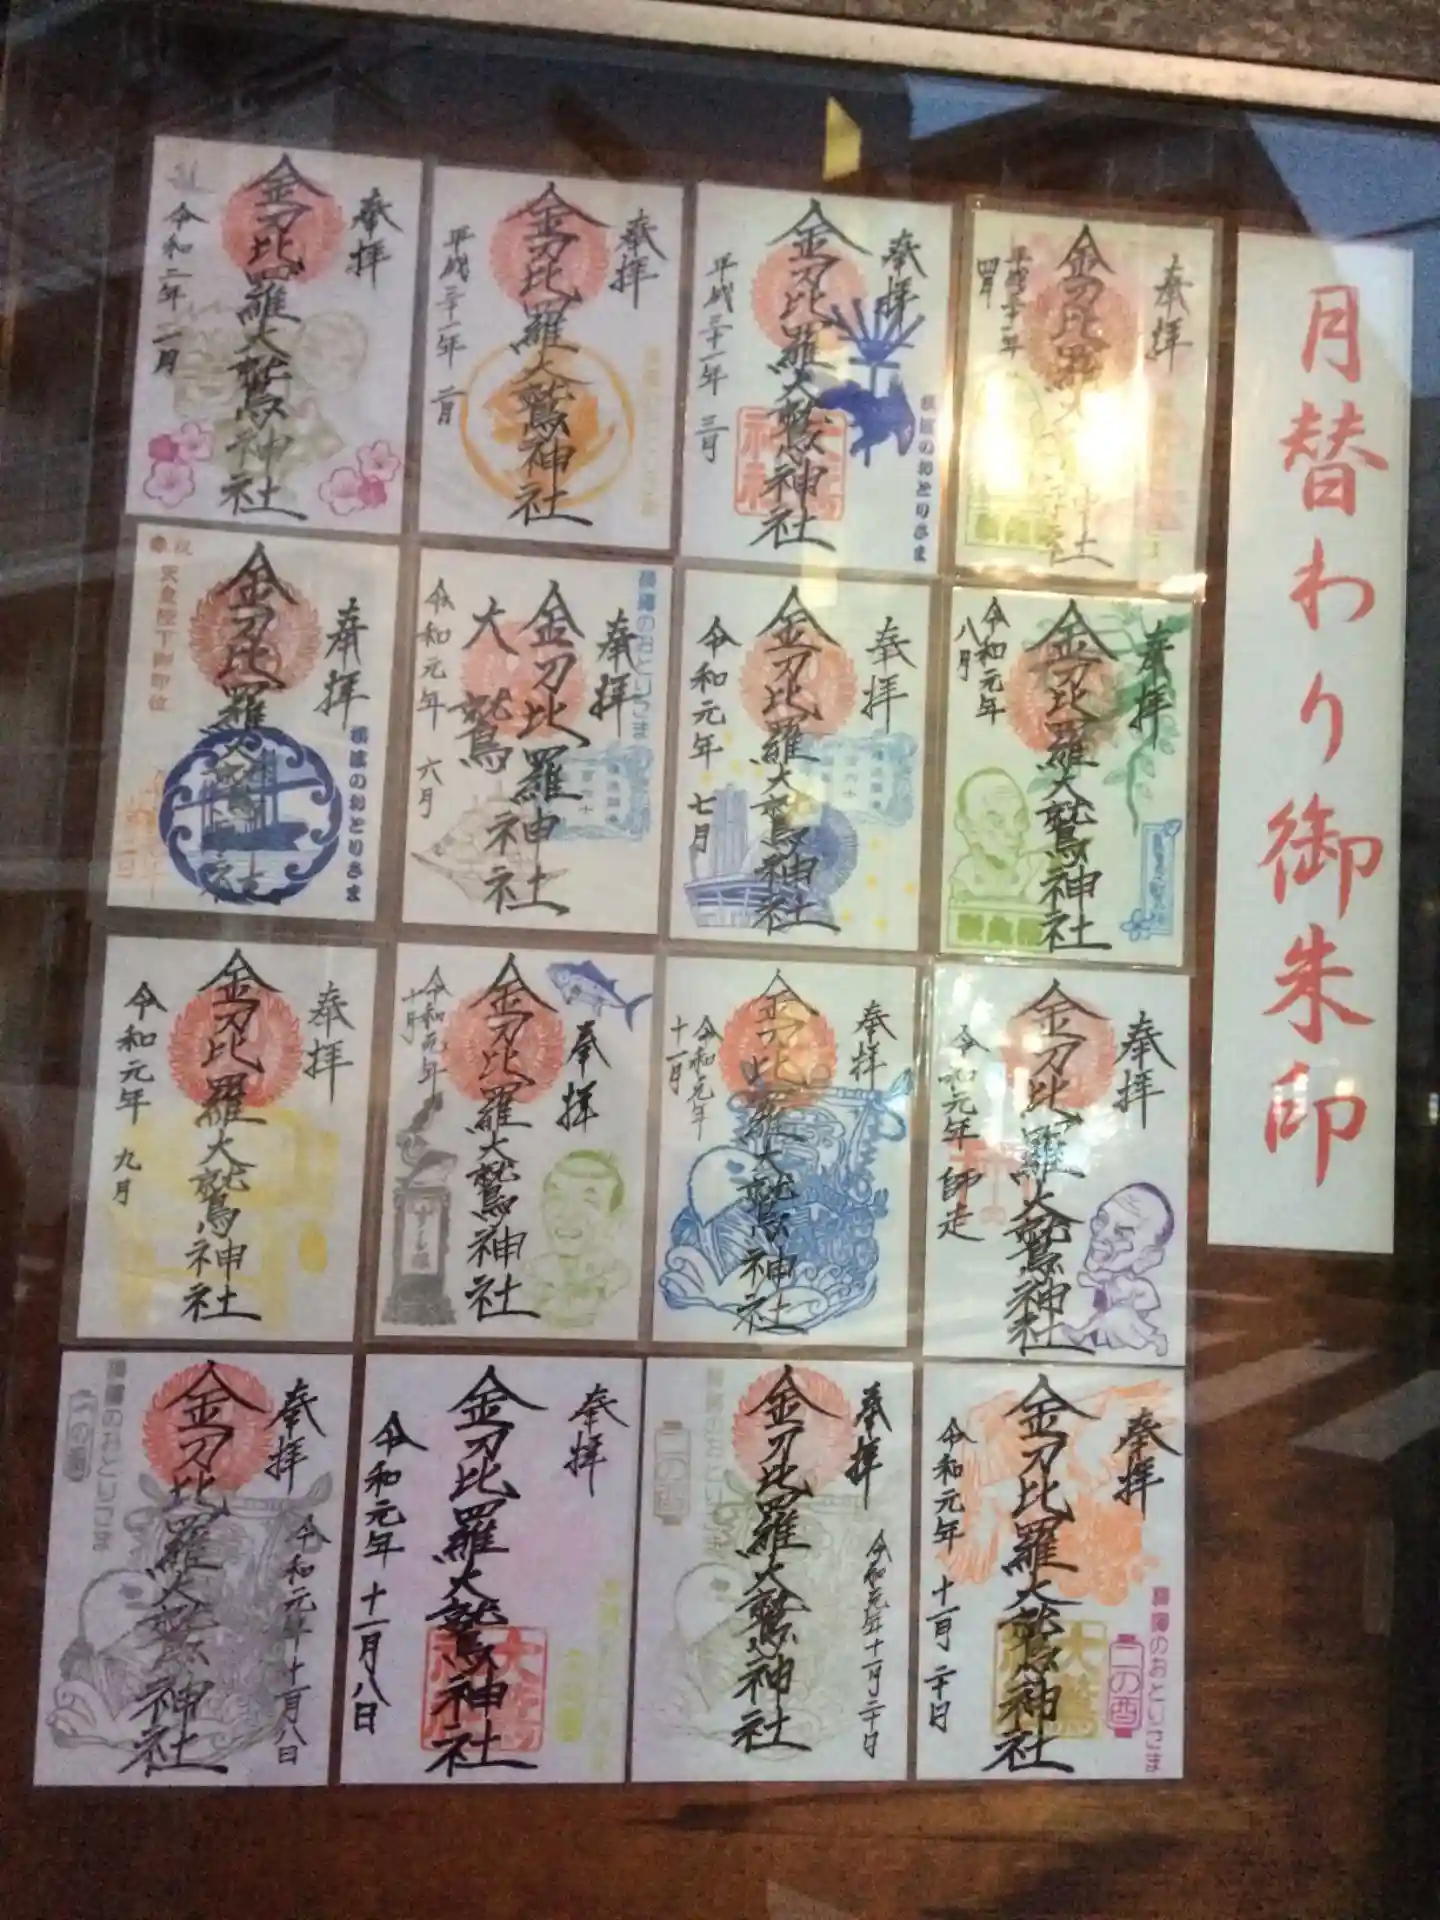 月替わり御朱印
奉拝
金刀比羅大鷲神社
令和二年 二月
奉拝
金刀比羅大鷲神社
平成三十一年 二月
奉拝
金刀比羅大鷲神社
平成三十一年 三月
横浜のおとりさま
奉拝
平成三十一年
四月
奉拝
祝 天皇陛下御即位
横浜のおとりさま
横濱のおとりさま
奉拝
金刀比羅
大鷲神社
令和元年 六月
奉拝
金刀比羅大鷲神社
令和元年 七月
奉拝
金刀比羅大鷲神社
令和元年
八月
奉拝
金刀比羅大鷲神社
令和元年 九月
奉拝
金刀比羅大鷲神社
令和元年
十月
奉拝
金刀比羅大鷲神社
令和元年
十一月
奉拝
金刀比羅大鷲神社
令和元年 師走
奉拝
令和元年十一月八日
金刀比羅大鷲神社
横濱のおとりさま
奉拝
金刀比羅大鷲神社
令和元年 十一月八日
奉拝
令和元年十一月二十日
金刀比羅大鷲神社
横濱のおとりさま
二の酉
奉拝
金刀比羅大鷲神社
令和元年 十一月二十日
横濱のおとりさま
二の酉